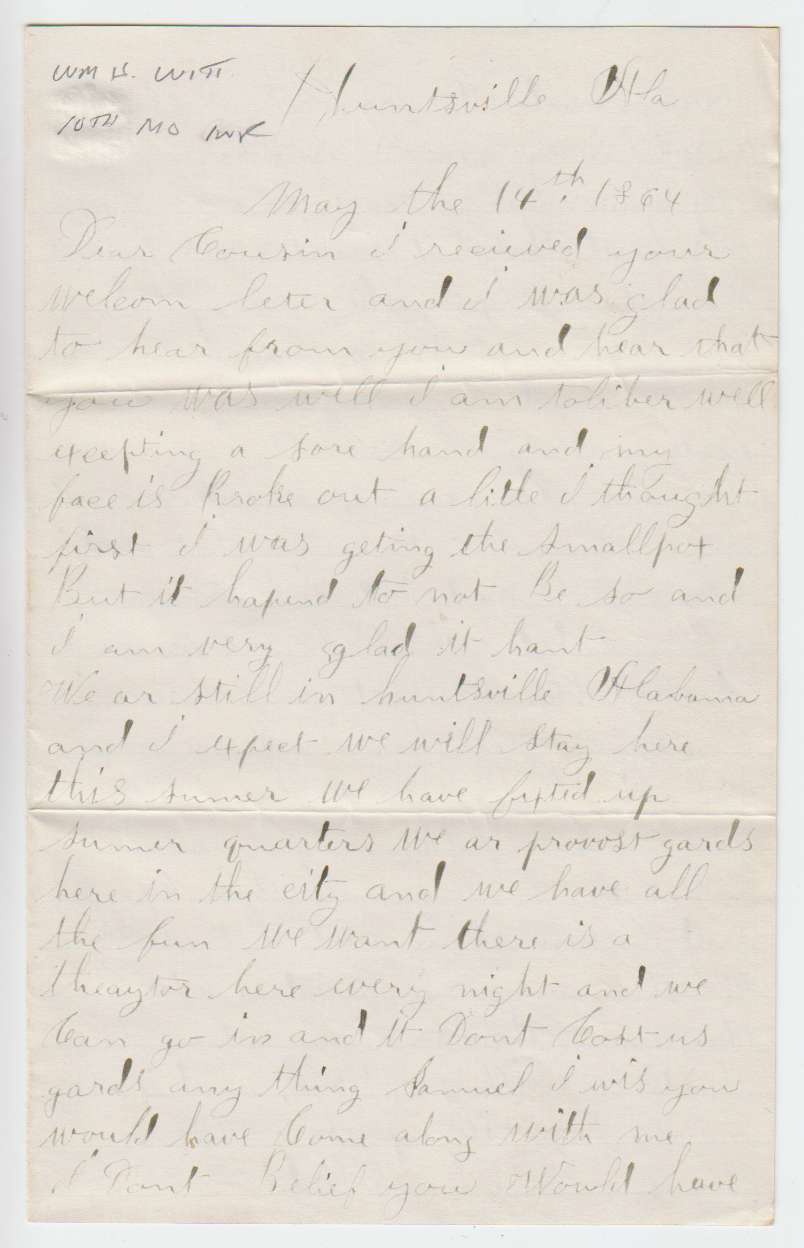 WM H. WITT
10TH MO INF
Huntsville Ala
May the 14th. 1864
Dear Cousin I recieved your
welcom leter and I was glad
to hear from you and hear that
you was well I am toliber well
excepting a sore hand and my
face is Broke out a litle I thought
first I was geting the smallpox
But it hapend to not Be so and
I am very glad it hant
We ar still in huntsville Alabama
and I expect we will stay here
this sumer we have fixted up
sumer quarters We ar provost gards
here in the city and we have all
the fun we want there is a
theaytor here every night and we
Can go in and it Dont Cost us
gards any thing Samuel I wis you
would have Come along with me
I Dont Belief you Would have